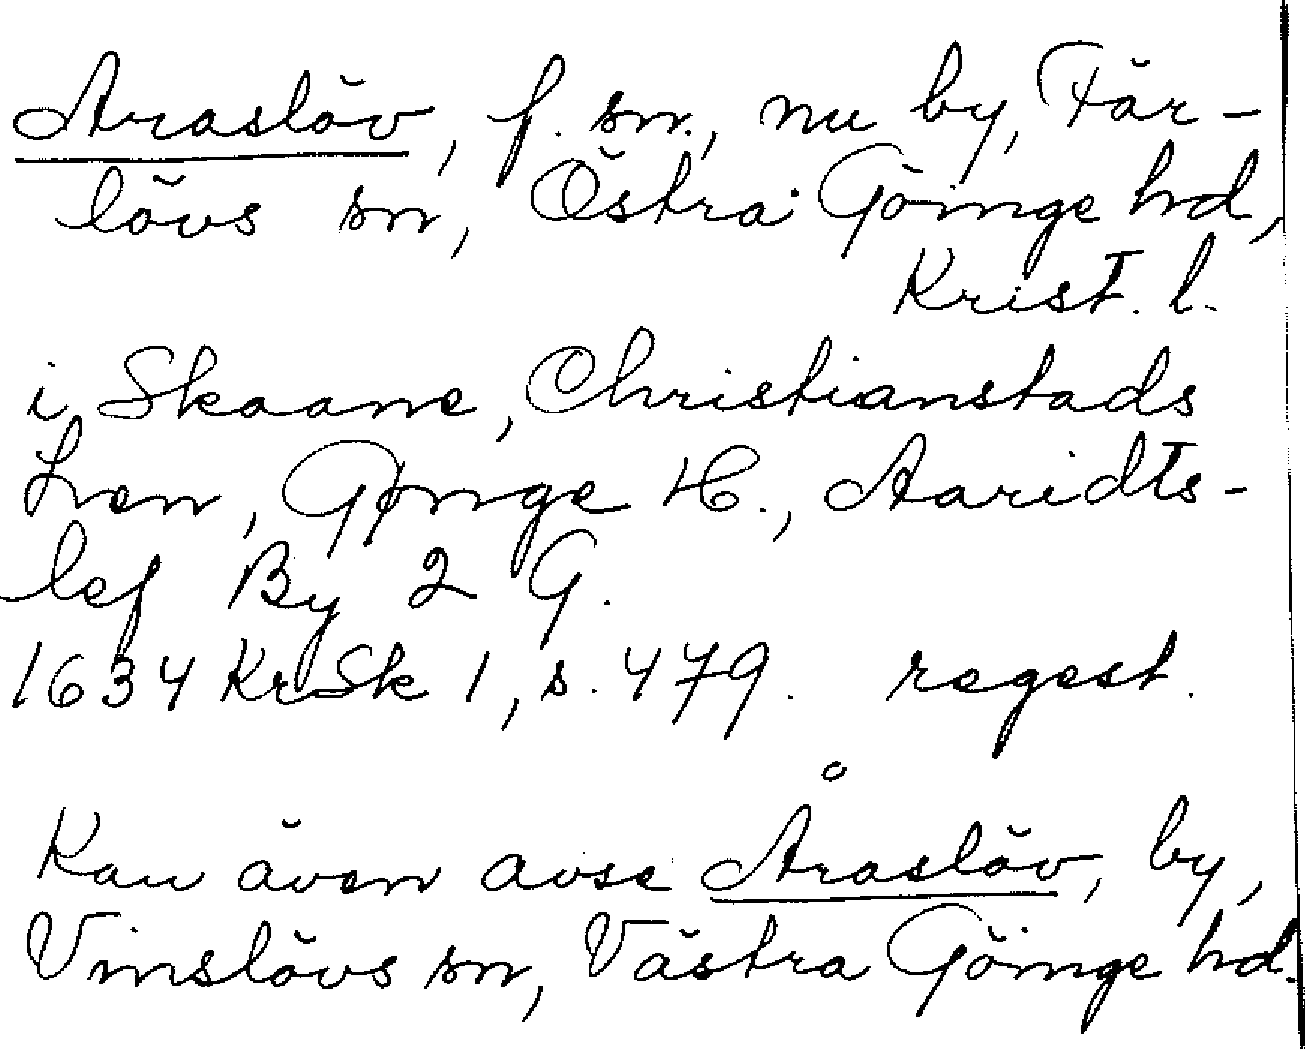 Araslöv, f. sn., nu by, Fär-
lövs sn, Östra Göinge hd,
Krist. l.
i Skaane, Christianstads
Læn, Gønge H., Aaridts-
lef By 2 G.
1634 KrSk 1, s. 479. regest.
Kan även avse Åraslöv, by,
Vinslövs sn, Västra Göinge hd.